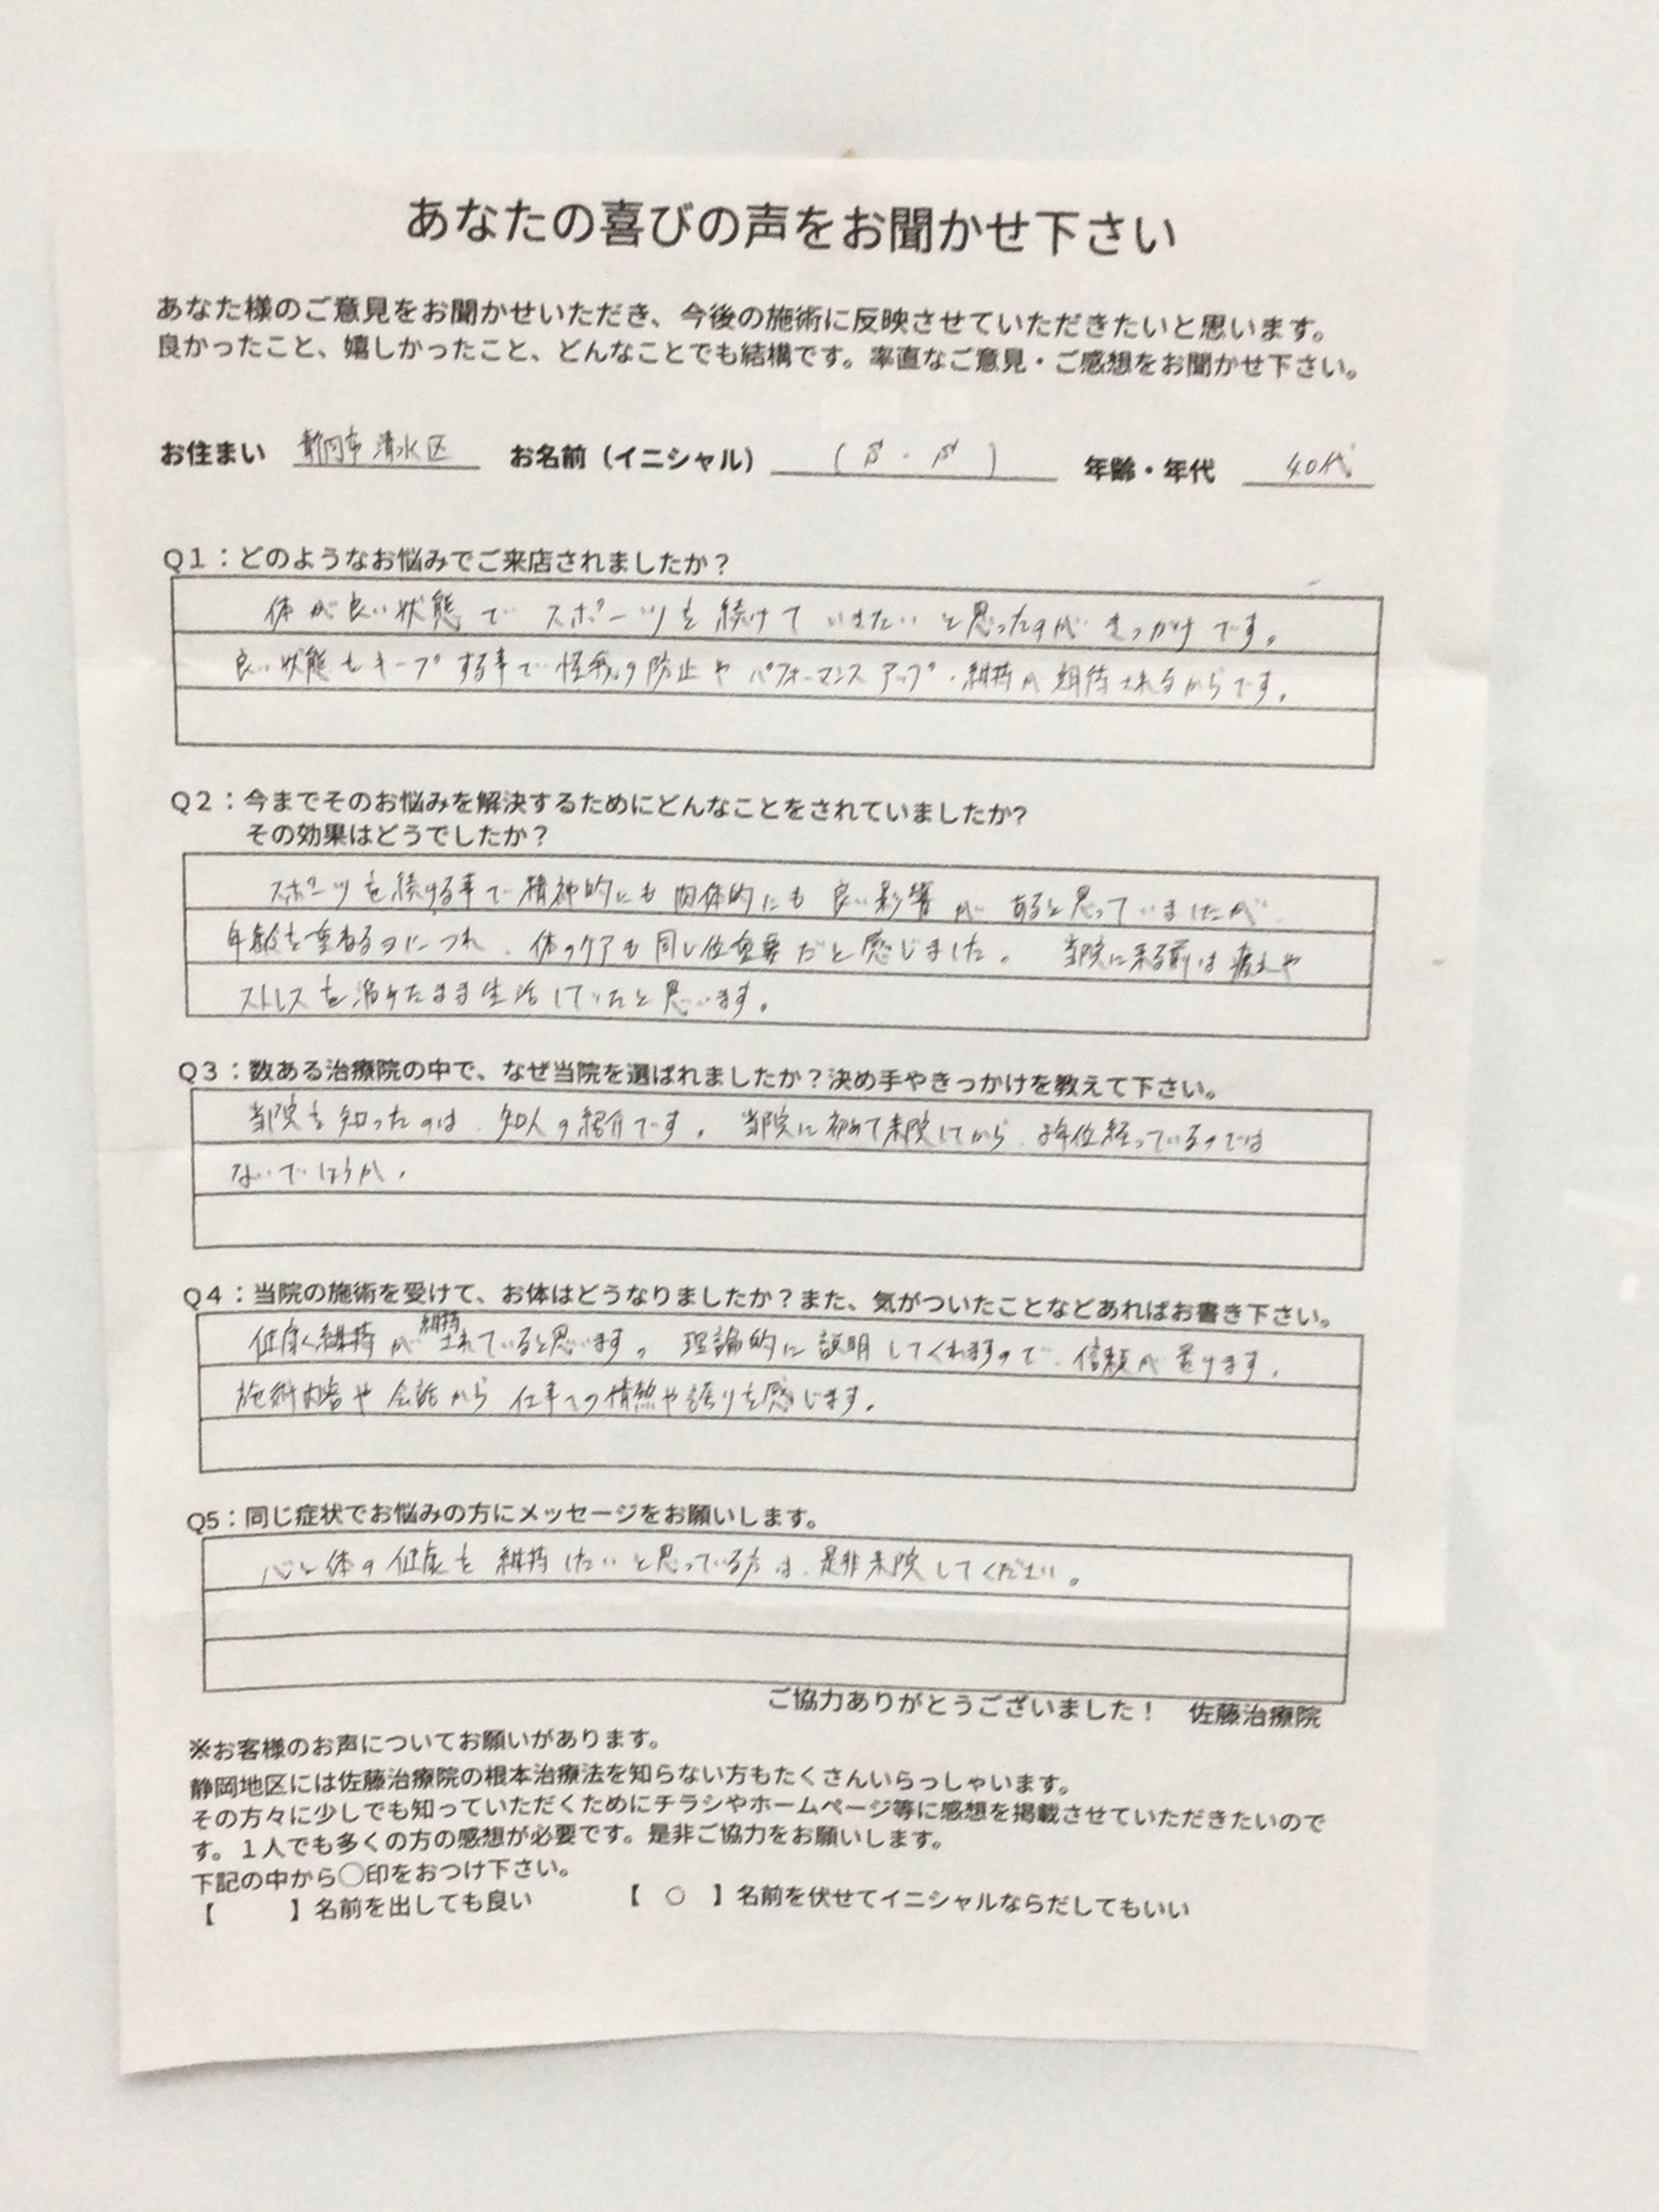 あなたの喜びの声をお聞かせ下さい
あなた様のご意見をお聞かせいただき、今後の施術に反映させていただきたいと思います。
良かったこと、嬉しかったこと、どんなことでも結構です。率直なご意見・ご感想をお聞かせ下さい。
お住まい 静岡市清水区 お名前（イニシャル） （S・S） 年齢・年代 40代
Q1：どのようなお悩みでご来店されましたか？
体が良い状態でスポーツを続けていきたいと思ったのがきっかけです。
良い状態をキープする事で怪我の防止やパフォーマンスアップ・維持が期待されるからです。
Q2：今までそのお悩みを解決するためにどんなことをされていましたか?
その効果はどうでしたか？
スポーツを続ける事で精神的にも肉体的にも良い影響があると思っていましたが
年齢を重ねるにつれ、体のケアも同じ位重要だと感じました。当院に来る前は疲れや
ストレスを溜めたまま生活していたと思います。
Q3：数ある治療院の中で、なぜ当院を選ばれましたか？決め手やきっかけを教えて下さい。
当院を知ったのは、知人の紹介です。当院に初めて来院してから、年位経っているのでは
ないでしょうか。
Q4：当院の施術を受けて、お体はどうなりましたか？また、気がついたことなどあればお書き下さい。
維持
健康維持がされていると思います。理論的に説明してくれますので、信頼が置けます。
施術内容や会話から仕事への情熱や誇りを感じます。
Q5：同じ症状でお悩みの方にメッセージをお願いします。
心と体の健康を維持したいと思っている方は、是非来院してください。
ご協力ありがとうございました！ 佐藤治療院
※お客様のお声についてお願いがあります。
静岡地区には佐藤治療院の根本治療法を知らない方もたくさんいらっしゃいます。
その方々に少しでも知っていただくためにチラシやホームページ等に感想を掲載させていただきたいので
す。１人でも多くの方の感想が必要です。是非ご協力をお願いします。
下記の中から○印をおつけ下さい。
【 】名前を出しても良い 【 ○ 】名前を伏せてイニシャルならだしてもいい